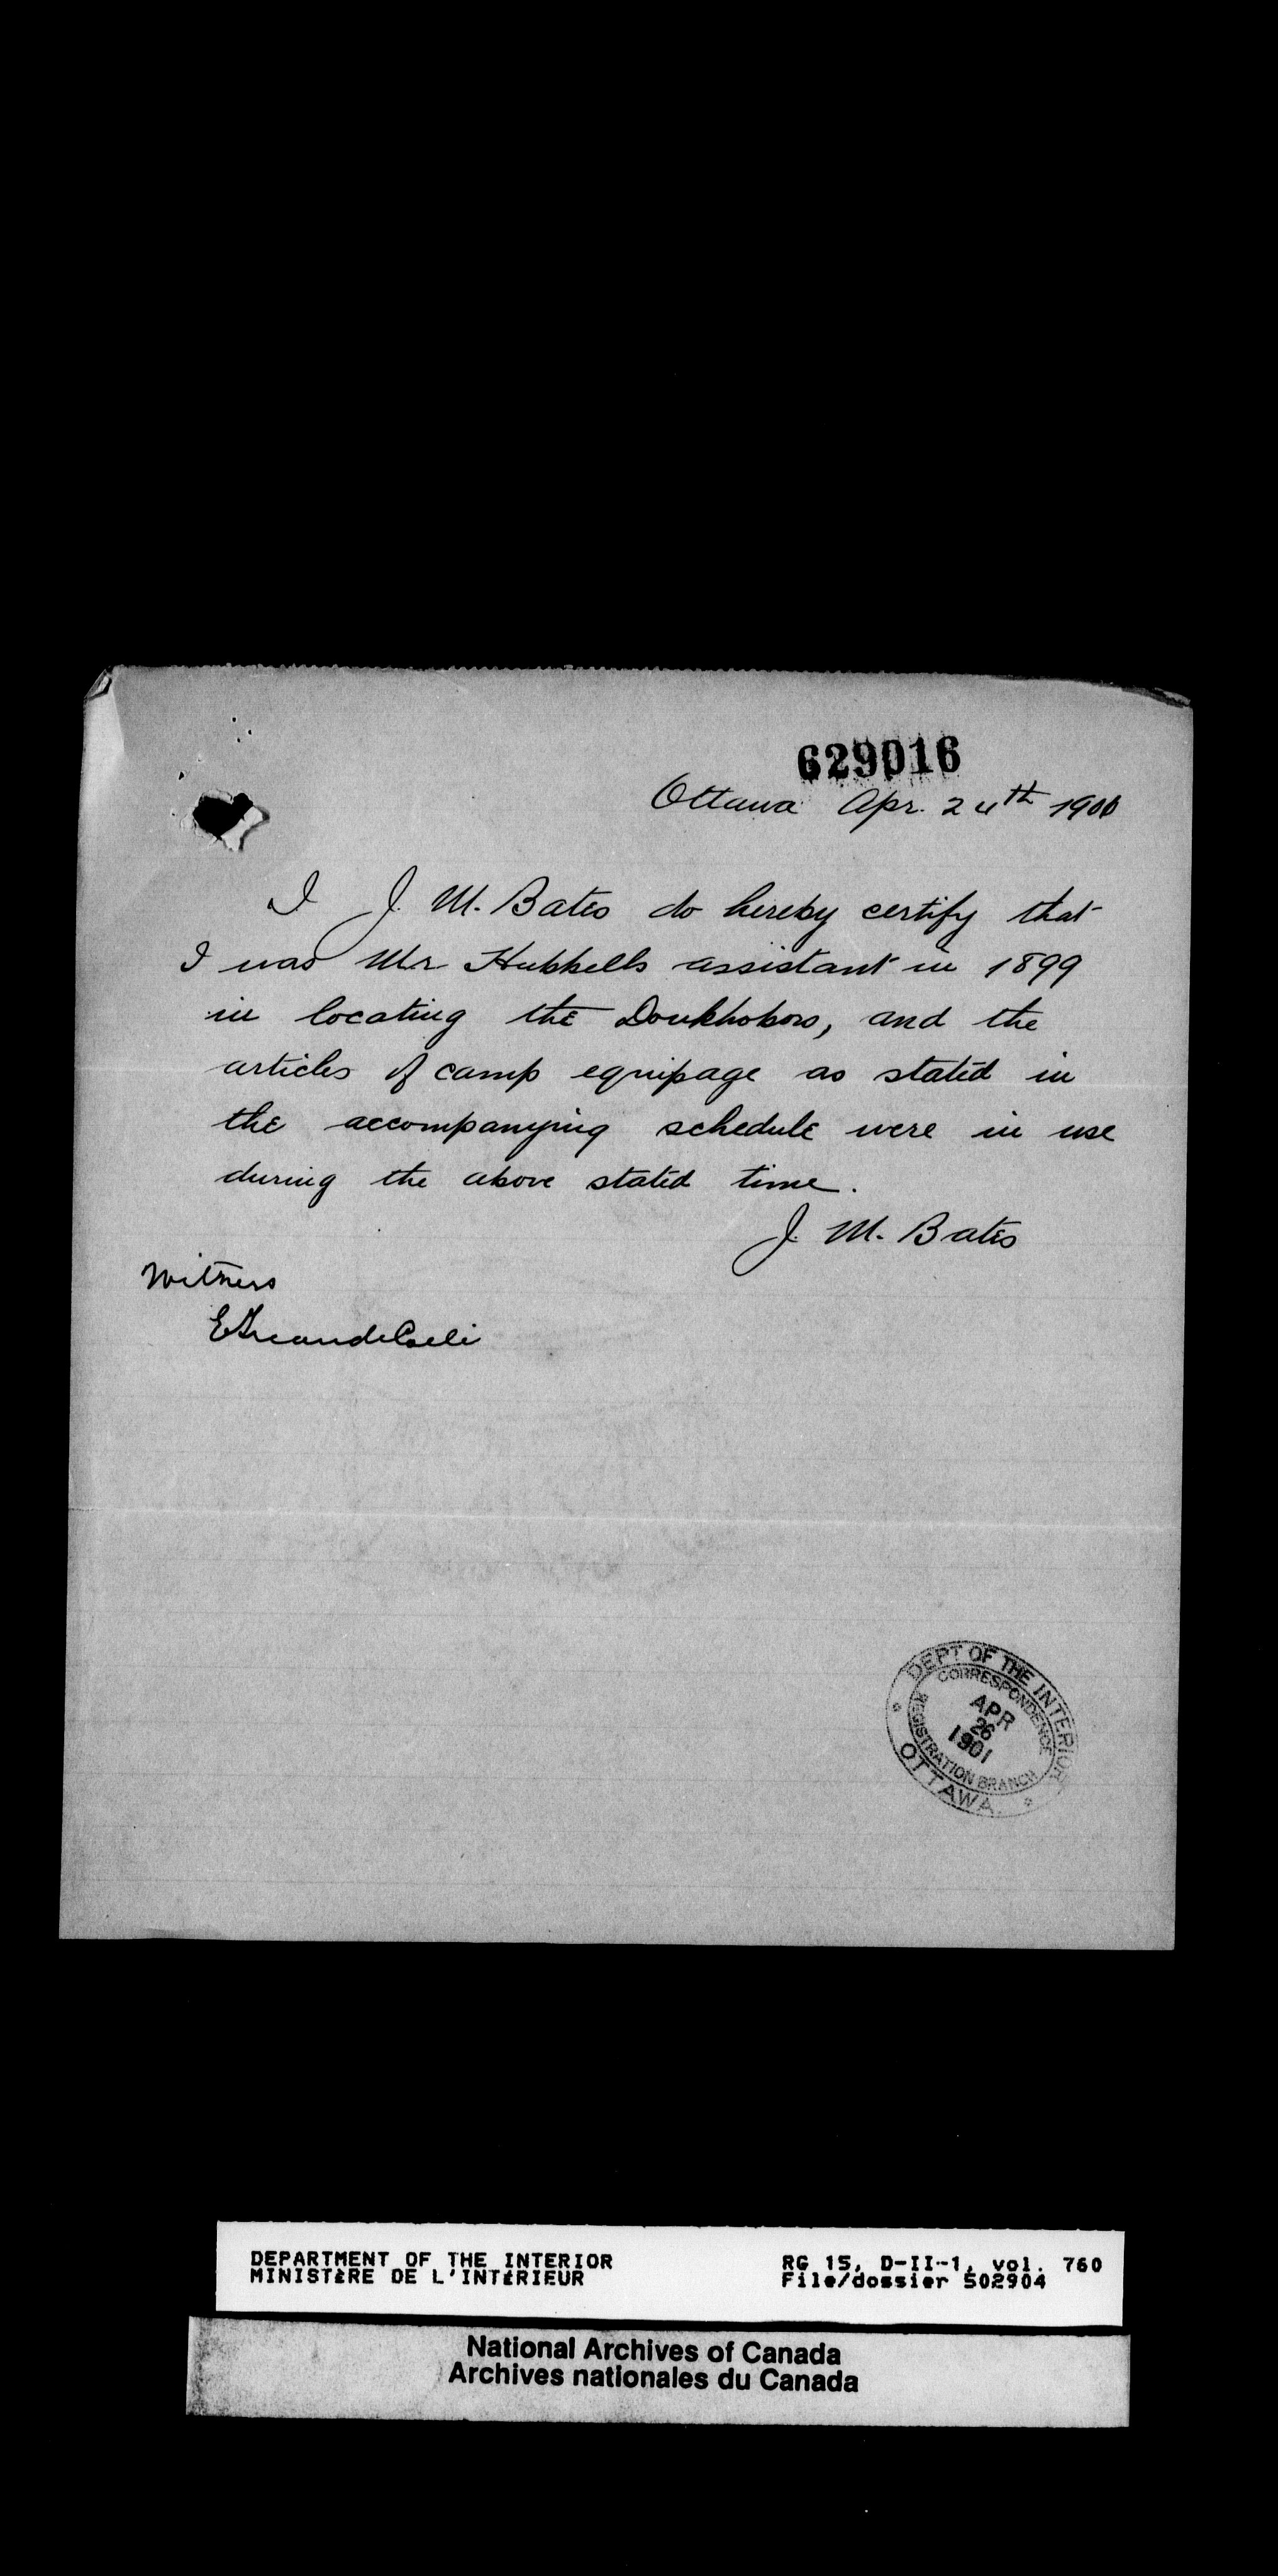 629016
Ottawa Apr. 24th
I J. M. Bates do hereby certify that
I was Mr Hubbells assistant in 1899
in locating the Doukhobors, and the
articles of camp equipage as stated in
the accompanying schedule were in use
during the above stated time.
J. M. Bates
Witness
DEPT OF THE INTERIOR
CORRESPONDENCE
APR
26
1901
REGISTRATION BRANCH
OTTAWA
DEPARTMENT OF THE INTERIOR RG 15, D-II-1, vol. 760
MINISTÈRE DE L'INTÉRIEUR File/dossier 502904
National Archives of Canada
Archives nationales du Canada